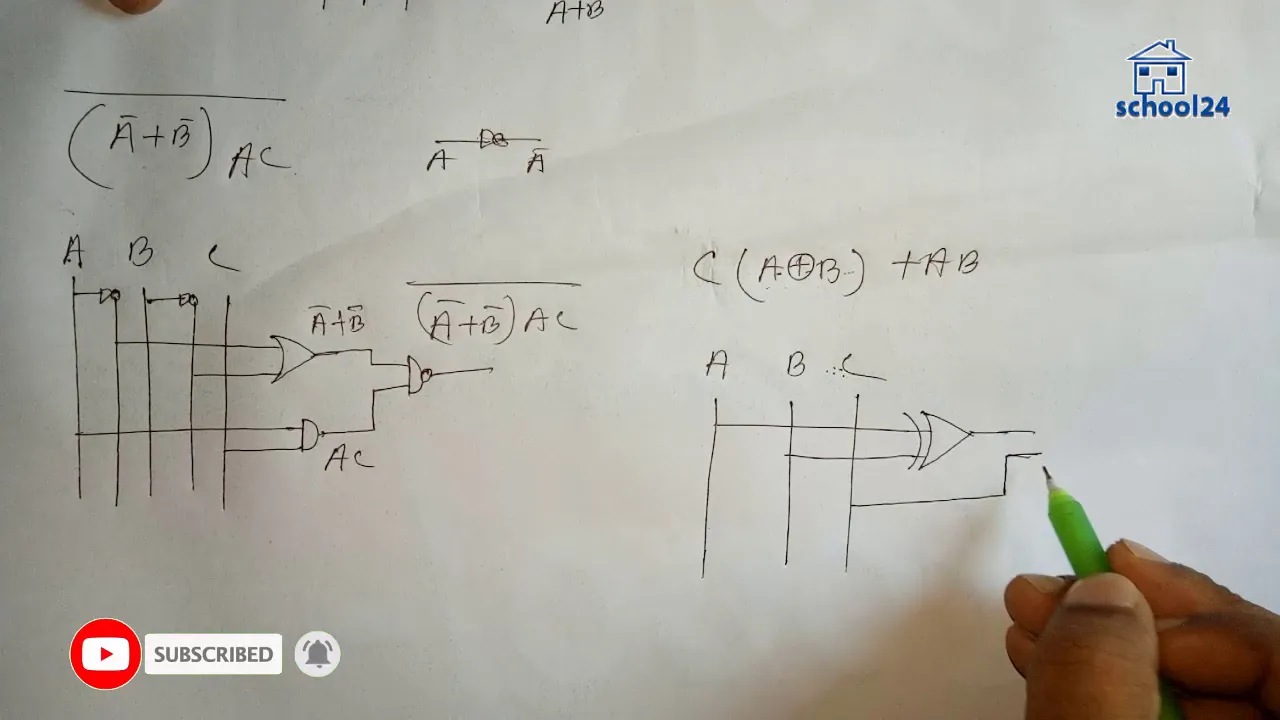 A+B
school24
(A̅+B̅)AC
A A̅
A B C
A̅+B̅
(A̅+B̅)AC
AC
C(A⊕B)+AB
A B C
SUBSCRIBED